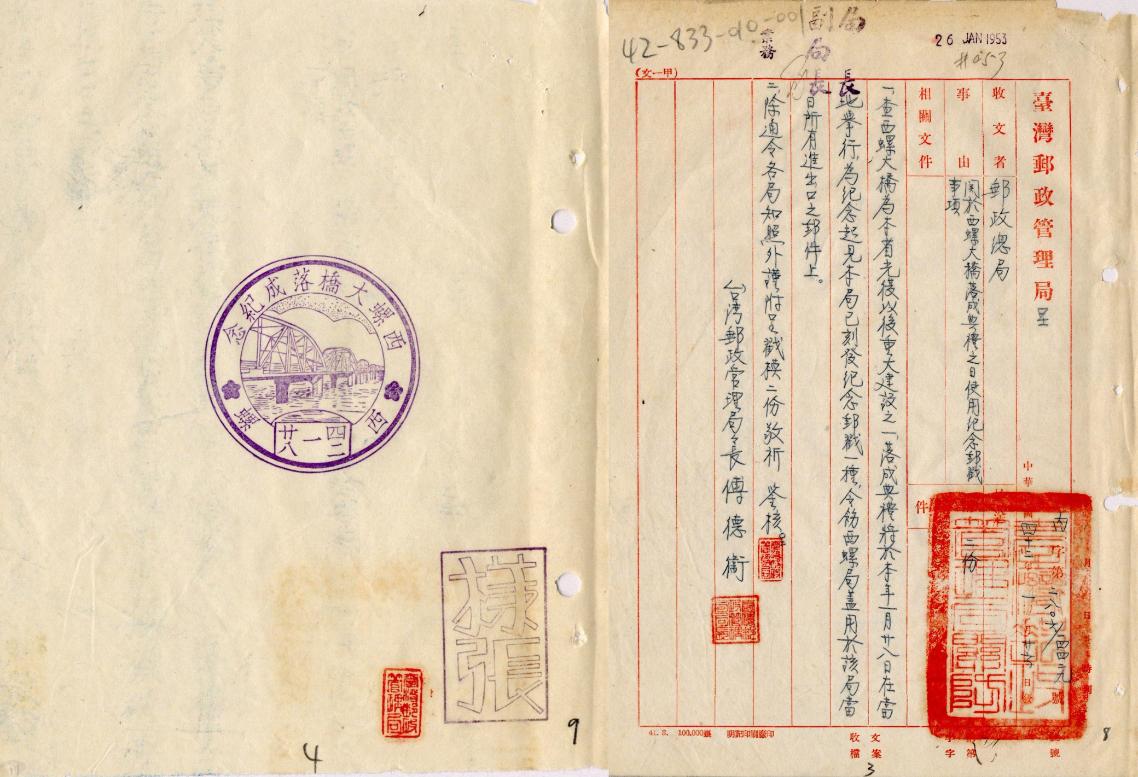 42-833-
26 JAN 1953
副局長
局長
業務
（文一甲）
臺灣郵政管理局 呈
收文者 郵政總局
事由 関於西螺大橋落成典禮之日使用紀念郵戳
事項
相關文件
件
二份
中華
一查西螺大橋為本省光復以後重大建設之一落成典禮將於本年一月廿八日在當
地舉行為紀念起見本局已刻發紀念郵戳一種令飭西螺局蓋用於該局當
日所有進出口之郵件上。
二除通令各局知照外謹附呈戳模二份敬祈 鑒核。
台灣郵政管理局局長傅德衛
41. 3. 100.000
收文
檔案
字
號
8
3
西螺大橋落成紀念
西螺
四二
一
廿八
樣張
臺灣郵政管理局
4
9